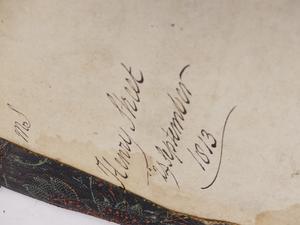 Henry Street
in September
1813